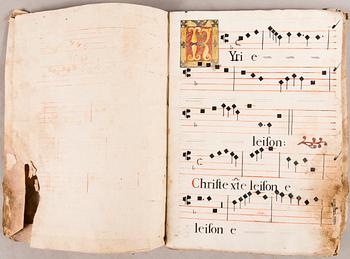 KYri e
leison:
Christe xp̄te leison e
leison e